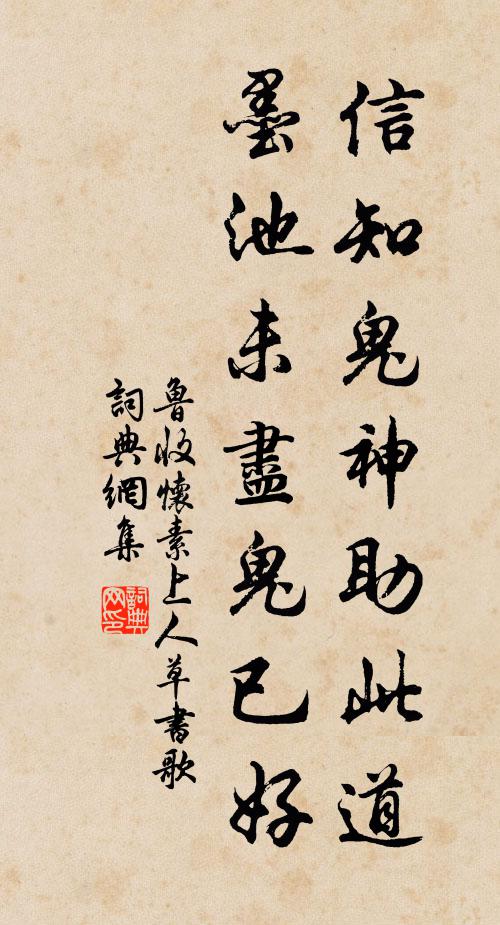 信知鬼神助此道
墨池未盡鬼已好
魯收懷素上人草書歌
詞典網集
詞典网印